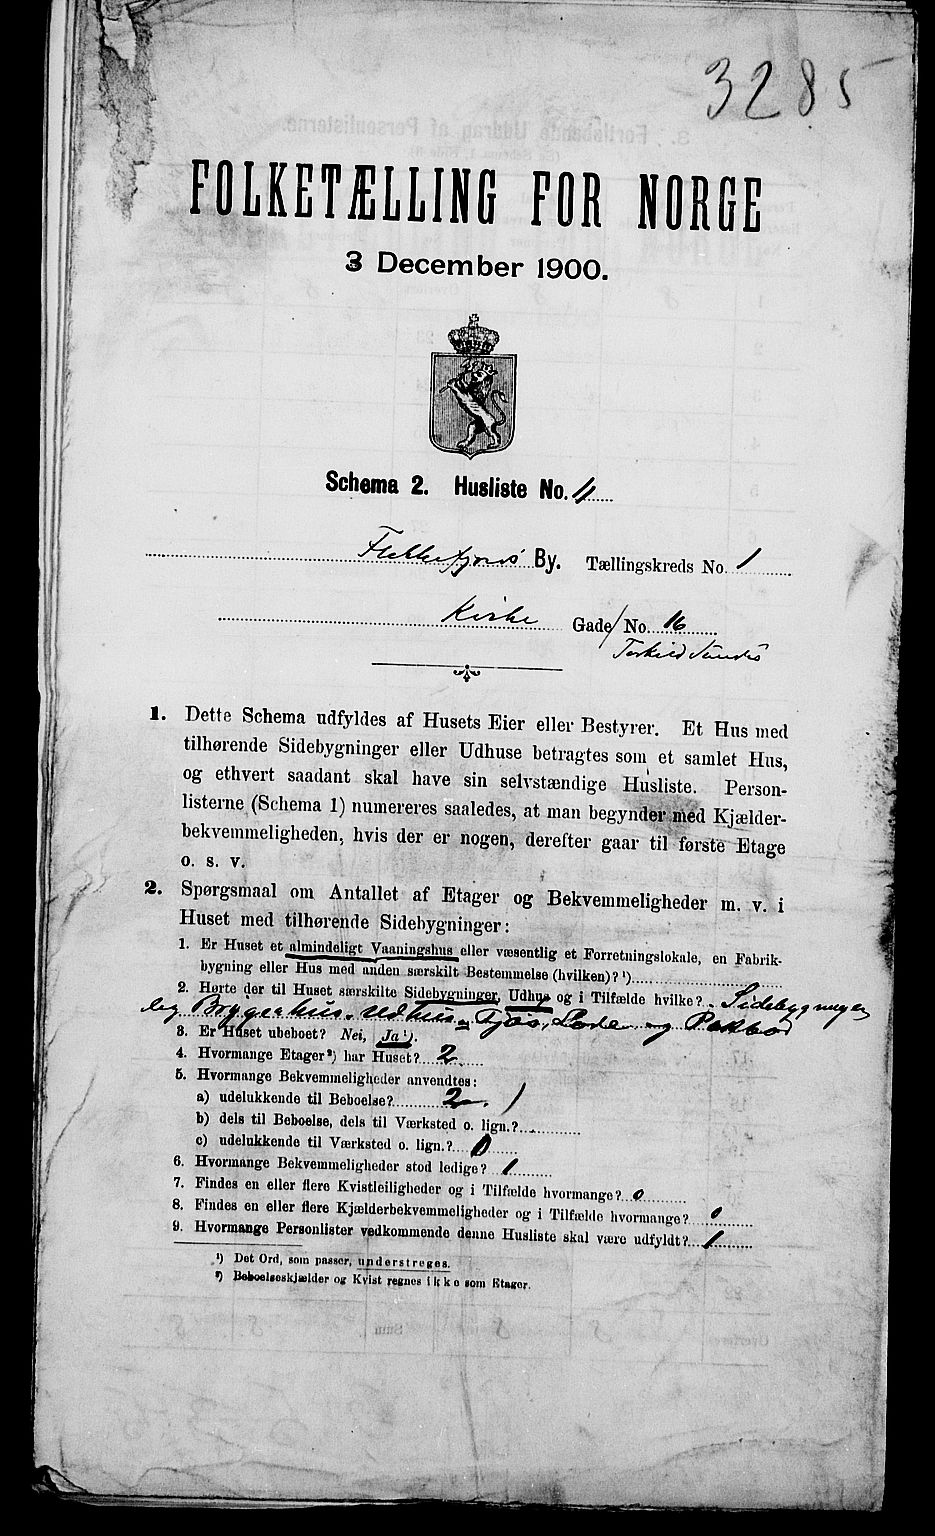 3285
FOLKETÆLLING FOR NORGE
3 December 1900.
Schema 2. Husliste No. 11
Flekkefjords By. Tællingskreds No. 1
Kirke Gade/No. 16
1. Dette Schema udfyldes af Husets Eier eller Bestyrer. Et Hus med
tilhørende Sidebygninger eller Udhuse betragtes som et samlet Hus,
og ethvert saadant skal have sin selvstændige Husliste. Person-
listerne (Schema 1) numereres saaledes, at man begynder med Kjælder-
bekvemmeligheden, hvis der er nogen, derefter gaar til første Etage
o. s. v.
2. Spørgsmaal om Antallet af Etager og Bekvemmeligheder m. v. i
Huset med tilhørende Sidebygninger:
1. Er Huset et almindeligt Vaaningshus eller væsentlig et Forretningslokale, en Fabrik-
bygning eller Hus med anden særskilt Bestemmelse (hvilken)? ¹)
2. Hørte der til Huset særskilte Sidebygninger, Udhus og i Tilfælde hvilke? Sidebygningen
Bryggerhus. Udhus og Pakbod
3. Er Huset ubeboet? Nei, Ja ¹).
4. Hvormange Etager²) har Huset? 2
5. Hvormange Bekvemmeligheder anvendtes:
a) udelukkende til Beboelse? 2. /
b) dels til Beboelse, dels til Værksted o. lign.?
c) udelukkende til Værksted o. lign.? 0
6. Hvormange Bekvemmeligheder stod ledige? 1
7. Findes en eller flere Kvistleiligheder og i Tilfælde hvormange? 0
8. Findes en eller flere Kjælderbekvemmeligheder og i Tilfælde hvormange? 0
9. Hvormange Personlister vedkommende denne Husliste skal være udfyldt? 1
¹) Det Ord, som passer, understreges.
²) Beboelseskjælder og Kvist regnes ikke som Etager.